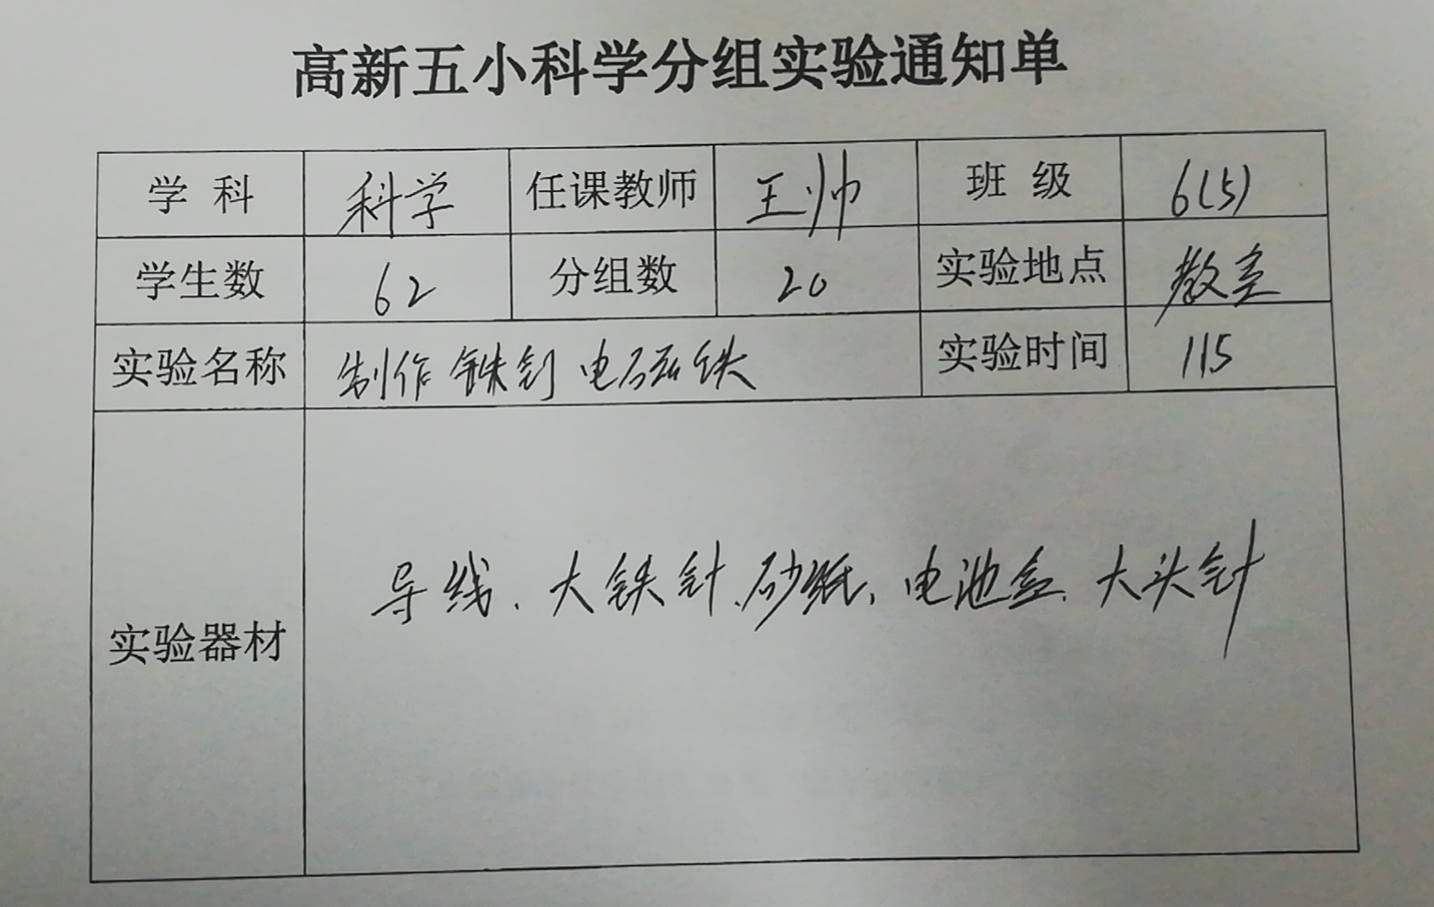 高新五小科学分组实验通知单
学科 科学 任课教师 王帅 班级 6(5)
学生数 62 分组数 20 实验地点 教室
实验名称 制作铁钉电磁铁 实验时间 115
实验器材 导线、大铁针、砂纸、电池盒、大头针